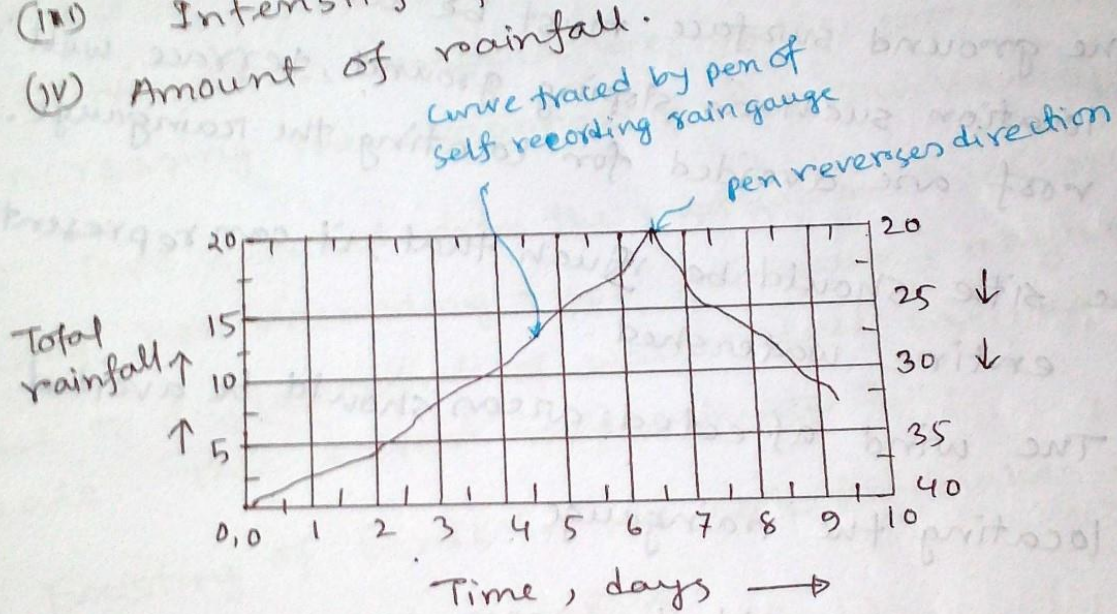 (iv) Amount of rainfall.
curve traced by pen of
self recording raingauge
pen reverses direction
20 20
25 ↓
15
Total
rainfall ↑ 10 30 ↓
↑ 5 35
40
0,0 1 2 3 4 5 6 7 8 9 10
Time, days →